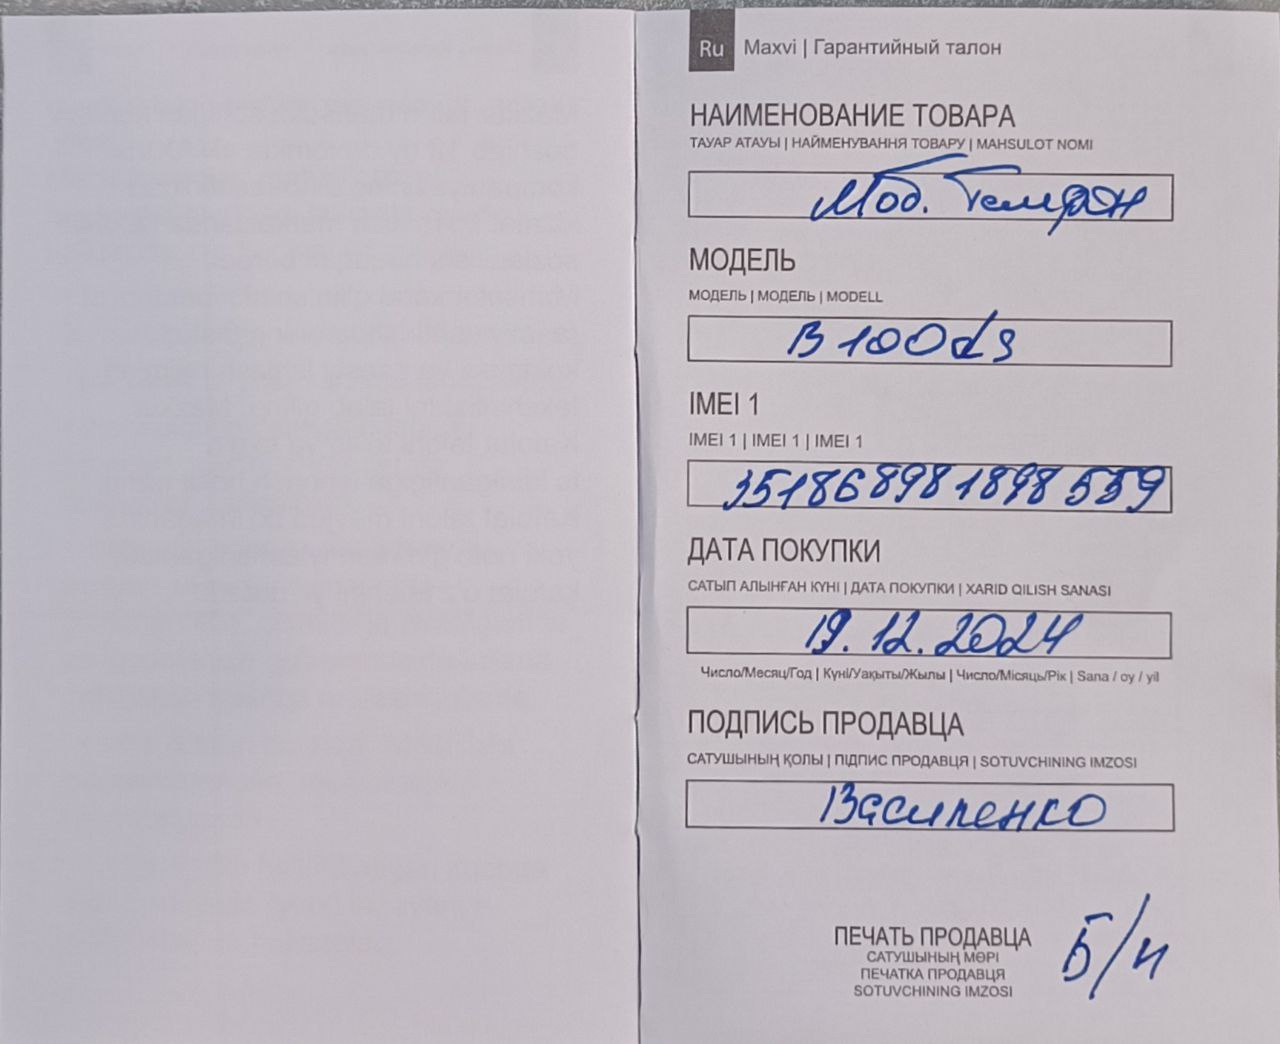 Ru Maxvi | Гарантийный талон
НАИМЕНОВАНИЕ ТОВАРА
ТАУАР АТАУЫ | НАЙМЕНУВАННЯ ТОВАРУ | MAHSULOT NOMI
Моб. Телефон
МОДЕЛЬ
МОДЕЛЬ | МОДЕЛЬ | MODELL
B100ds
IMEI 1
IMEI 1 | IMEI 1 | IMEI 1
351868981898559
ДАТА ПОКУПКИ
САТЫП АЛЫНҒАН КҮНІ | ДАТА ПОКУПКИ | XARID QILISH SANASI
19.12.2024
Число/Месяц/Год | Күні/Уақыты/Жылы | Число/Місяць/Рік | Sana / oy / yil
ПОДПИСЬ ПРОДАВЦА
САТУШЫНЫҢ ҚОЛЫ | ПІДПИС ПРОДАВЦЯ | SOTUVCHINING IMZOSI
Василенко
ПЕЧАТЬ ПРОДАВЦА
САТУШЫНЫҢ МӨРІ
ПЕЧАТКА ПРОДАВЦЯ
SOTUVCHINING IMZOSI
Б/н